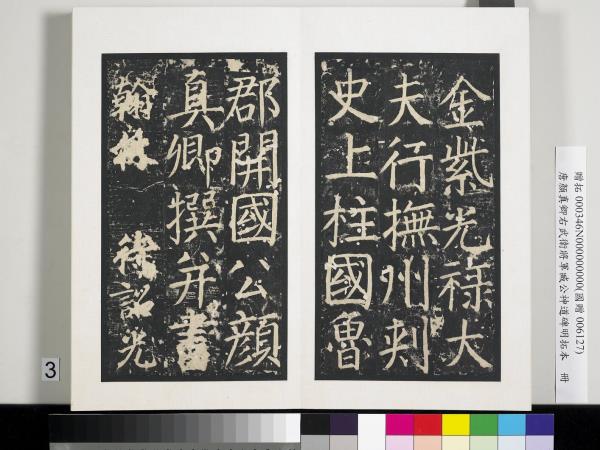 金紫光祿大
夫行撫州刾
史上柱國魯
郡開國公顏
真卿撰并書
翰林 待詔光
贈拓 000346N000000000(國贈 006127)
唐顏真卿右武衛將軍臧公神道碑明拓本 冊
3